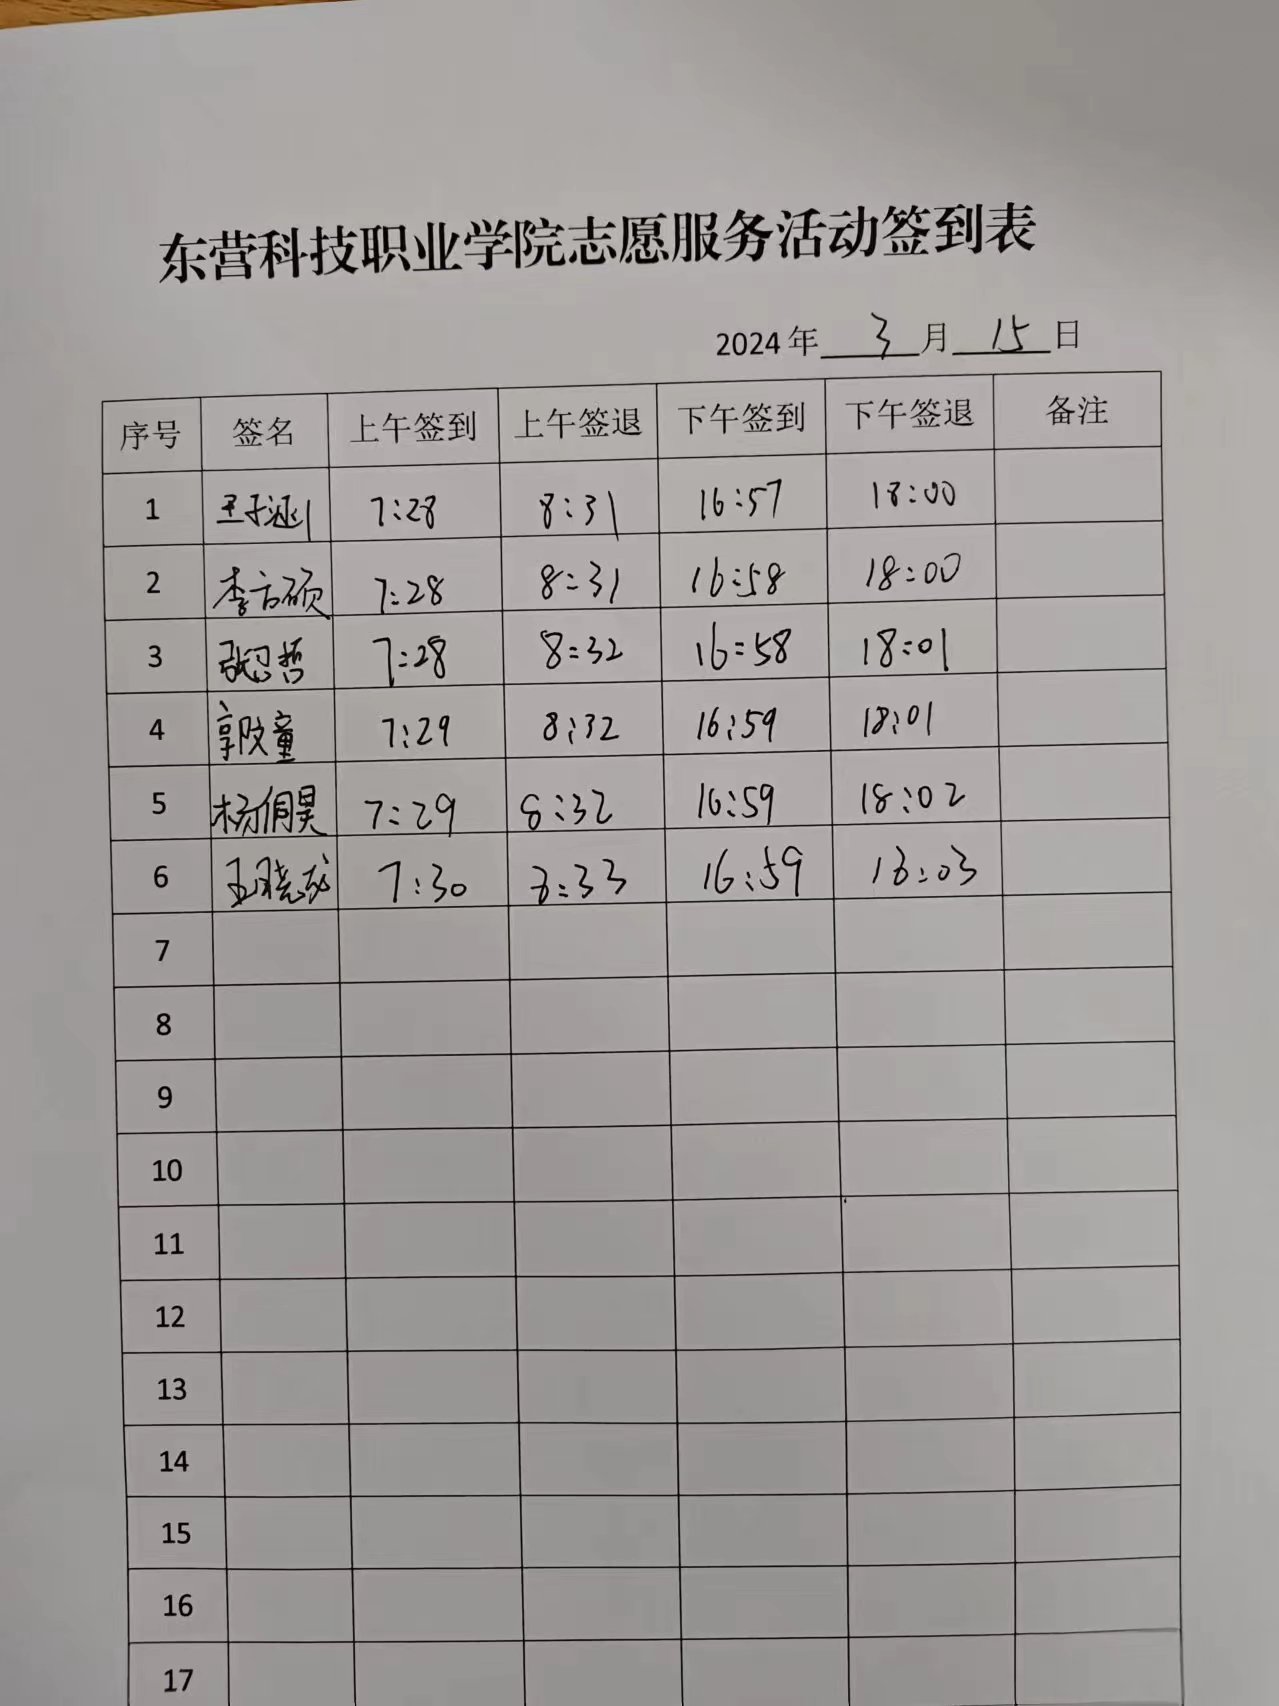 东营科技职业学院志愿服务活动签到表
2024年 3 月 15 日
序号 签名 上午签到 上午签退 下午签到 下午签退 备注
1 王子涵 7:28 8:31 16:57 18:00
2 李方硕 7:28 8:31 16:58 18:00
3 7:28 8:32 16:58 18:01
4 7:29 8:32 16:59 18:01
5 7:29 8:32 16:59 18:02
6 7:30 8:33 16:59 18:03
7
8
9
10
11
12
13
14
15
16
17